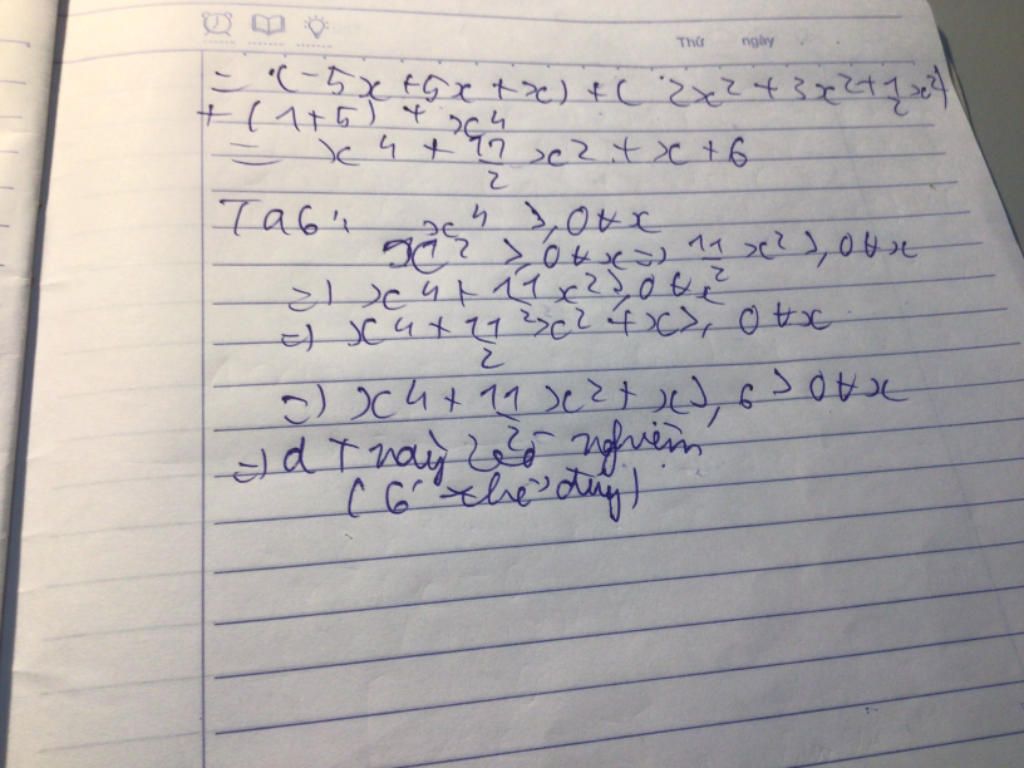 Thứ ngày
= (-5x + 5x + x) + ( 2x² + 3x² + 1/2 x²)
+ (1+5) + x⁴
= x⁴ + 11/2 x² + x + 6
Ta có: x⁴ ≥ 0 ∀x
x² ≥ 0 ∀x => 11/2 x² ≥ 0 ∀x
=> x⁴ + 11/2 x² ≥ 0 ∀x
=> x⁴ + 11/2 x² + x ≥ 0 ∀x
=> x⁴ + 11/2 x² + x ≥, 6 > 0 ∀x
=> đT này có nghiệm
(có thể đúng)